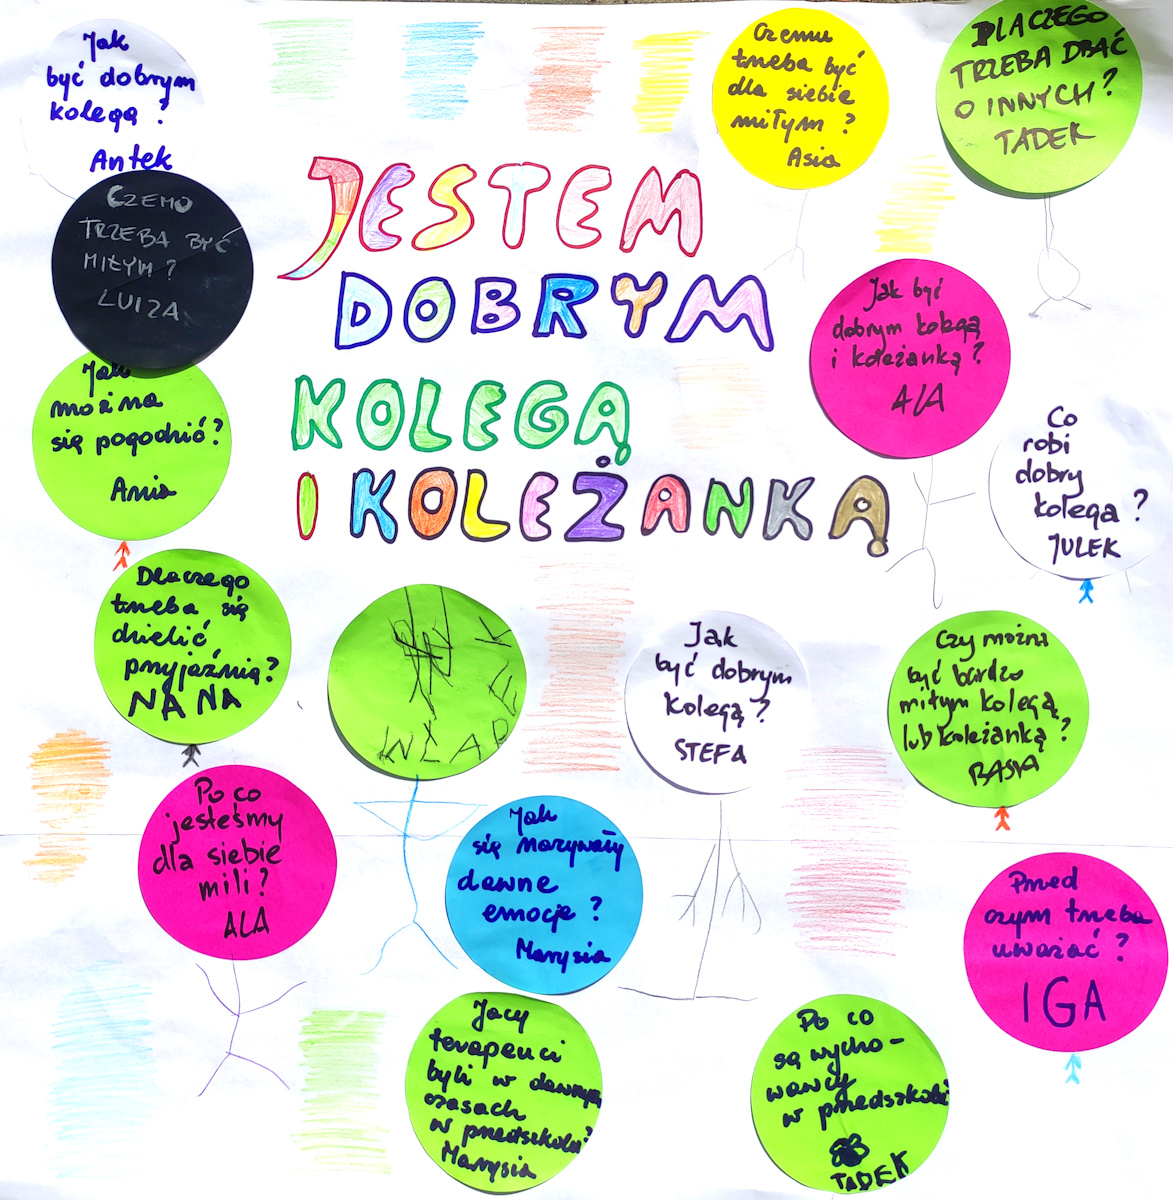 Jak
być dobrym
kolegą?
Antek
Czemu
trzeba być
dla siebie
miłym?
Asia
DLACZEGO
TRZEBA DBAĆ
O INNYCH?
TADEK
CZEMO
TRZEBA BYĆ
MIŁYM?
LUIZA
JESTEM
DOBRYM
KOLEGĄ
I KOLEŻANKĄ
Jak być
dobrym kolegą
i koleżanką?
ALA
Jak
można
się pogodzić?
Ania
Co
robi
dobry
kolega?
JULEK
Dlaczego
trzeba się
dzielić
przyjaźnią?
NANA
WŁADEK
Jak
być dobrym
kolegą?
STEFA
Czy można
być bardzo
miłym kolegą
lub koleżanką?
BASIA
Po co
jesteśmy
dla siebie
mili?
ALA
Jak
się nazywały
dawne
emocje?
Marysia
Przed
czym trzeba
uważać?
IGA
Jacy
terapeuci
byli w dawnych
czasach
w przedszkolu?
Marysia
Po co
są wycho-
wawcy
w przedszkolu
TADEK